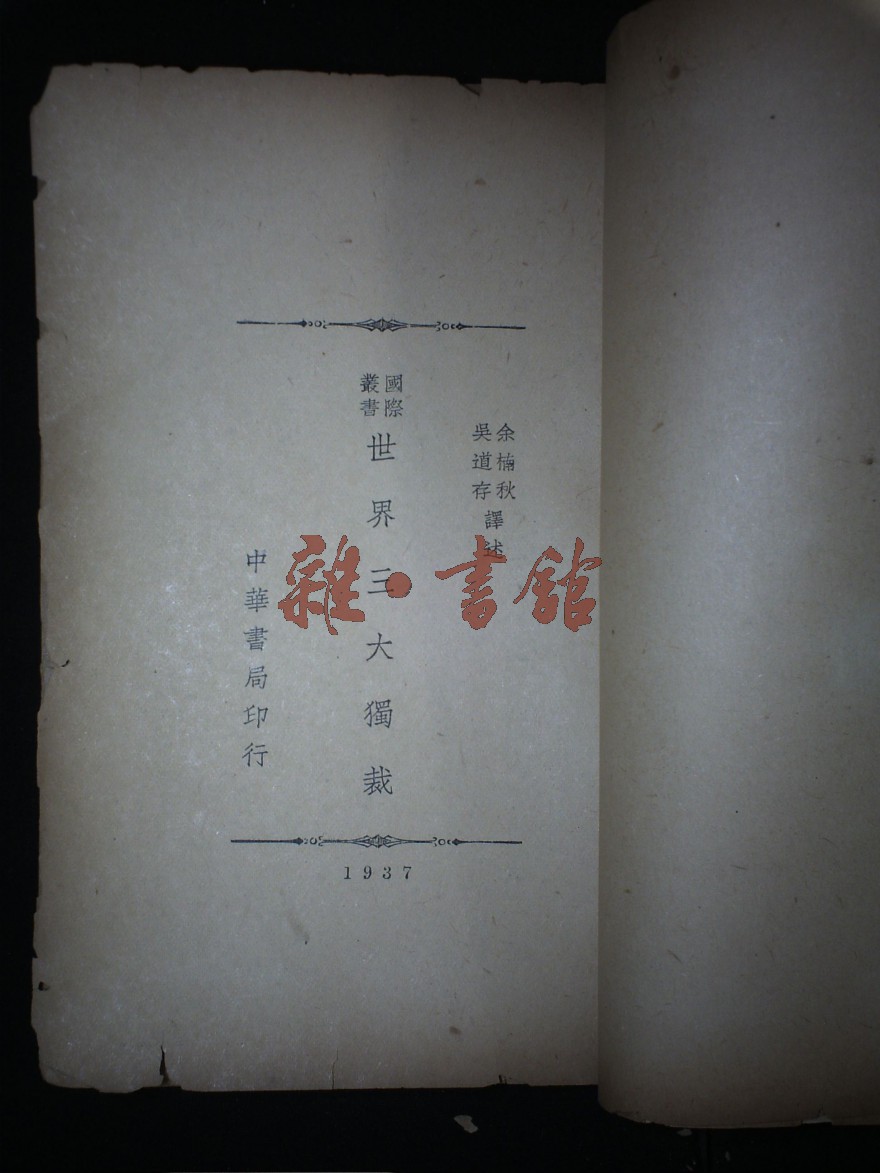 余楠秋
吳道存
譯述
國際
叢書
世界三大獨裁
中華書局印行
1937
雜·書館